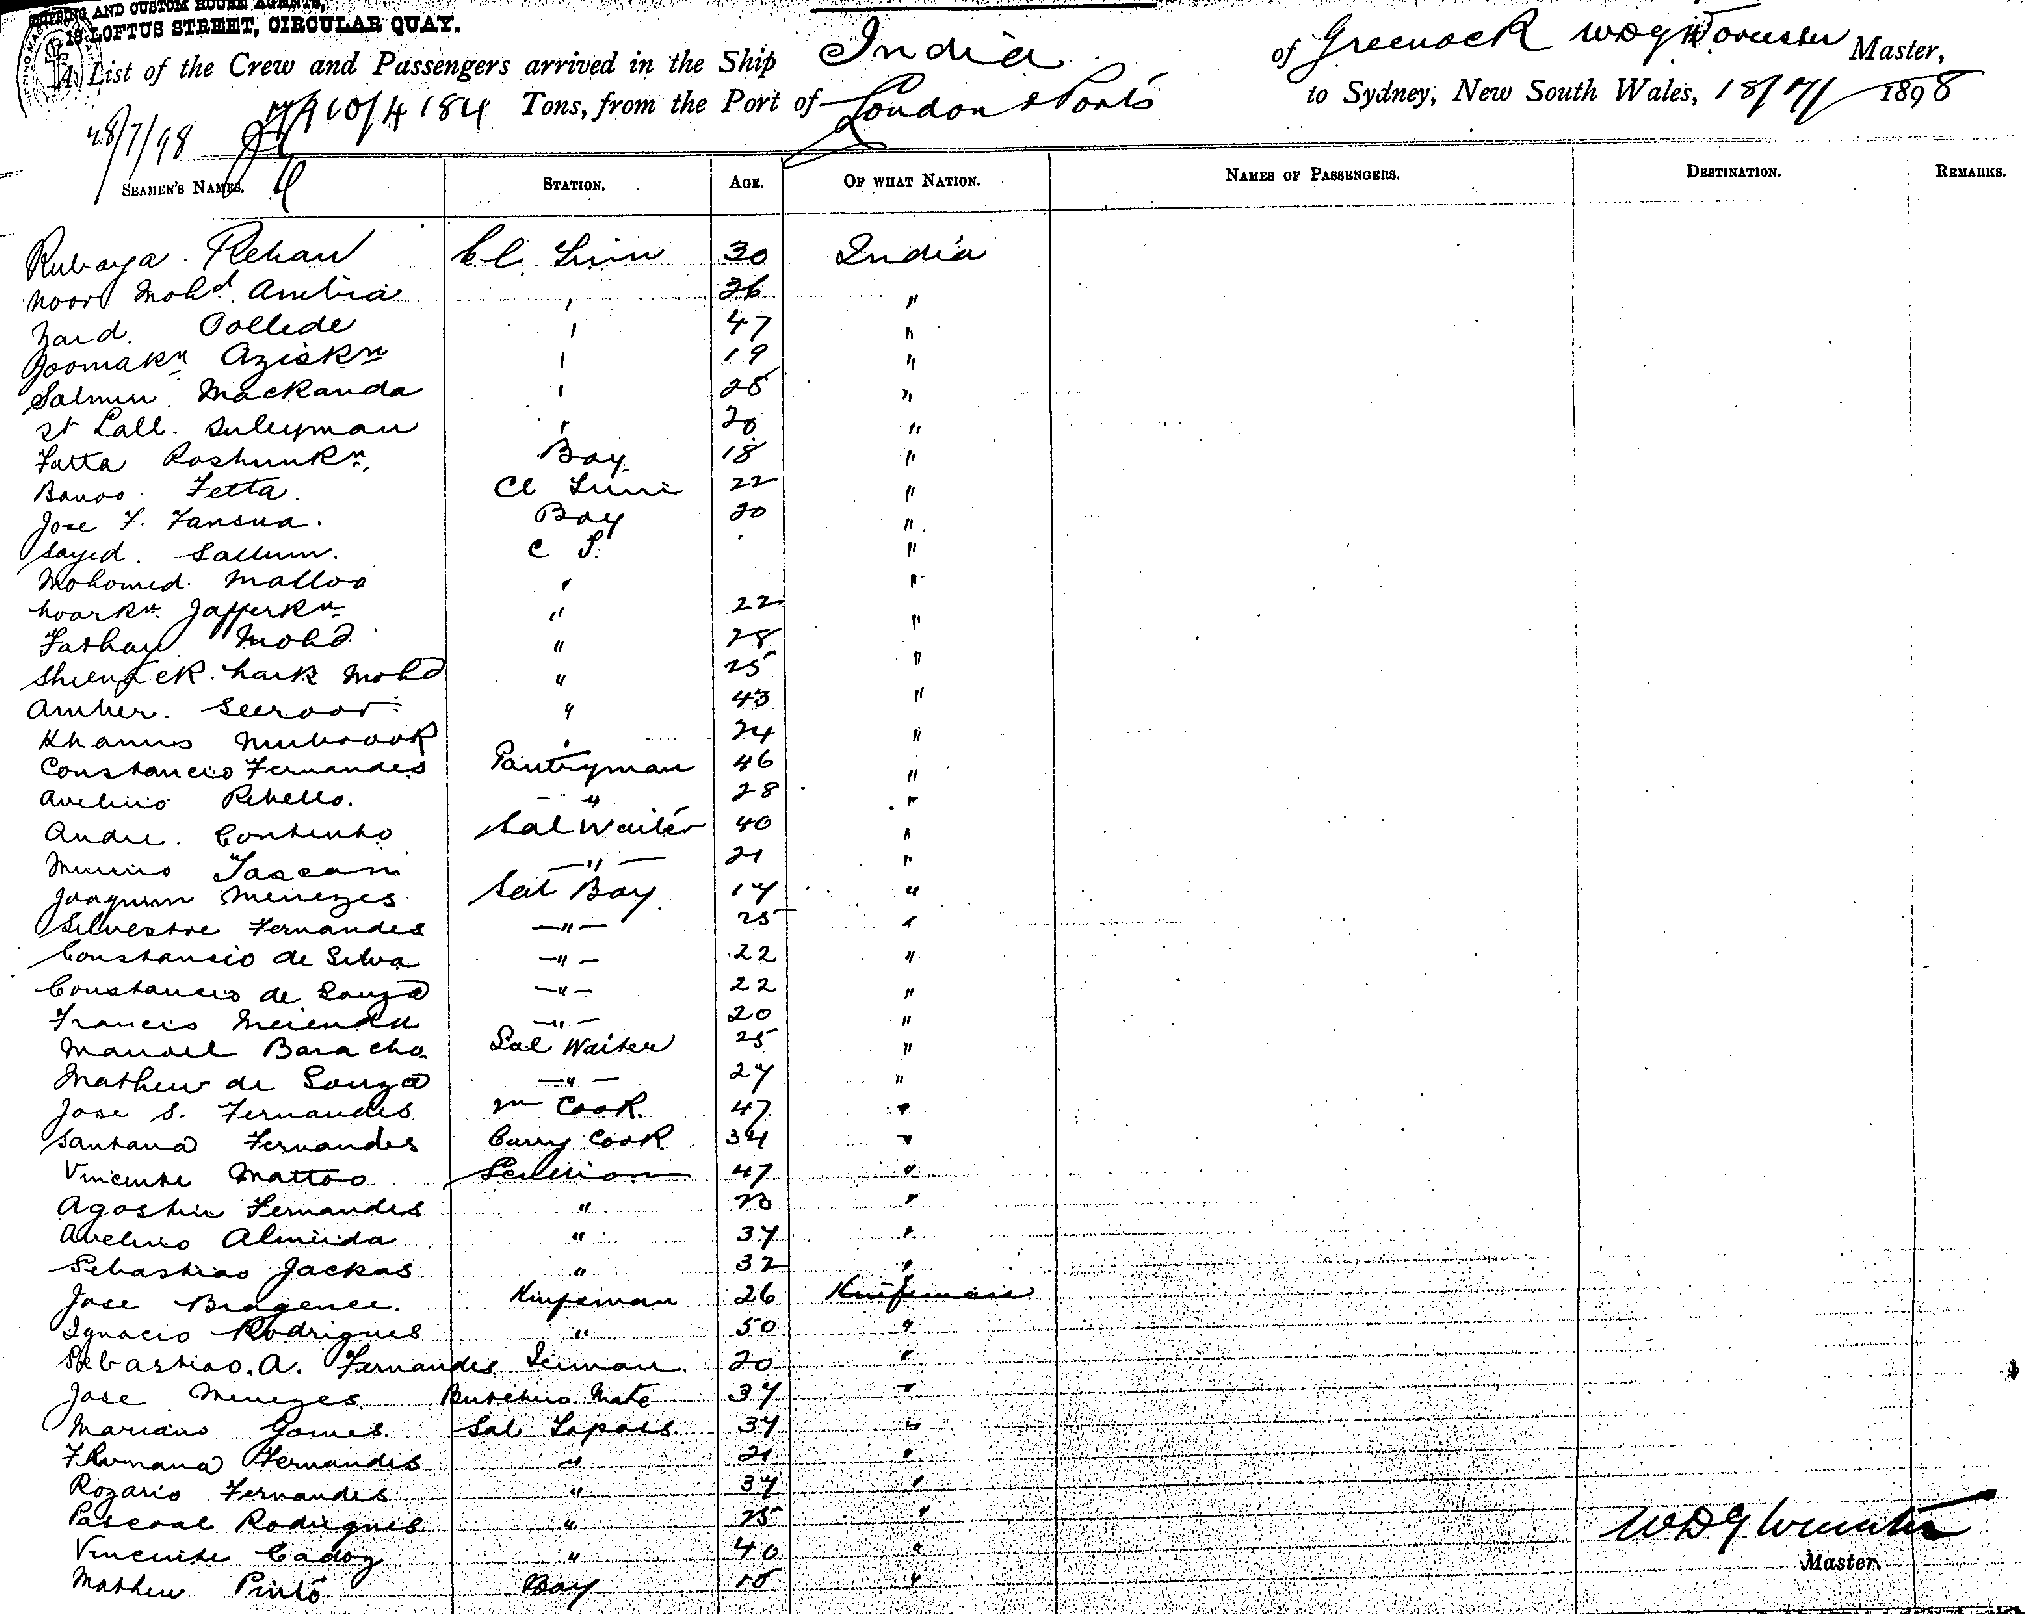 SHIPPING AND CUSTOM HOUSE AGENTS,
18 LOFTUS STREET, CIRCULAR QUAY.
A List of the Crew and Passengers arrived in the Ship India of Greenock WDG Worcester Master,
4184 Tons, from the Port of London & Ports to Sydney, New South Wales, 18/7/ 1898
28/7/98
SEAMEN'S NAMES. STATION. AGE. OF WHAT NATION. NAMES OF PASSENGERS. DESTINATION. REMARKS.
Rubaya Rehan 30 India
Noor Mohd. Ambia 36 "
Zaid 47 "
Joomakn Aziskn 19 "
Salmin Mackanda 25 "
Lall Suleyman 20 "
Fatta Roshunkn Boy 18 "
Banoo Fetta 22 "
Jose F. Boy 20 "
Sayed Sallum. C S. "
Mohomed Malloo " "
Noorkn Jafferkn " 22 "
Fathay Mohd " 28 "
Mohd " 25 "
Amber Seeroor " 43 "
Khamis Mubrook " 24 "
Constancio Fernandes Pantryman 46 "
Avelino Rebello. " 28 "
Andre Sal Waiter 40 "
" 21 "
Joaquim Menezes Sal Boy 17 "
Silvestre Fernandes " 25 "
Constancio de Silva " 22 "
Constancio de Souza " 22 "
Francis " 20 "
Manoel Baracho Sal Waiter 25 "
Mathew de Souza " 27 "
Jose S. Fernandes Cook 47 "
Santana Fernandes Curry Cook 34 "
Vincente Mattos 47 "
Agostin Fernandes " 23 "
Avelino Almeida " 37 "
Sebastiao Jackas " 32 "
Jose Knifeman 26 Knifeman
Ignacio Rodrigues " 50 "
Sebastiao. A. Fernandes 20 "
Jose Menezes Butchers Mate 37 "
Mariano Gomes Sal Topass 37 "
Fernandes " 21 "
Rozario Fernandes " 37 "
Pascoal Rodrigues " 25 "
Vincente " 40 "
Mathew Pinto Boy 18 "
WDG Worcester
Master.